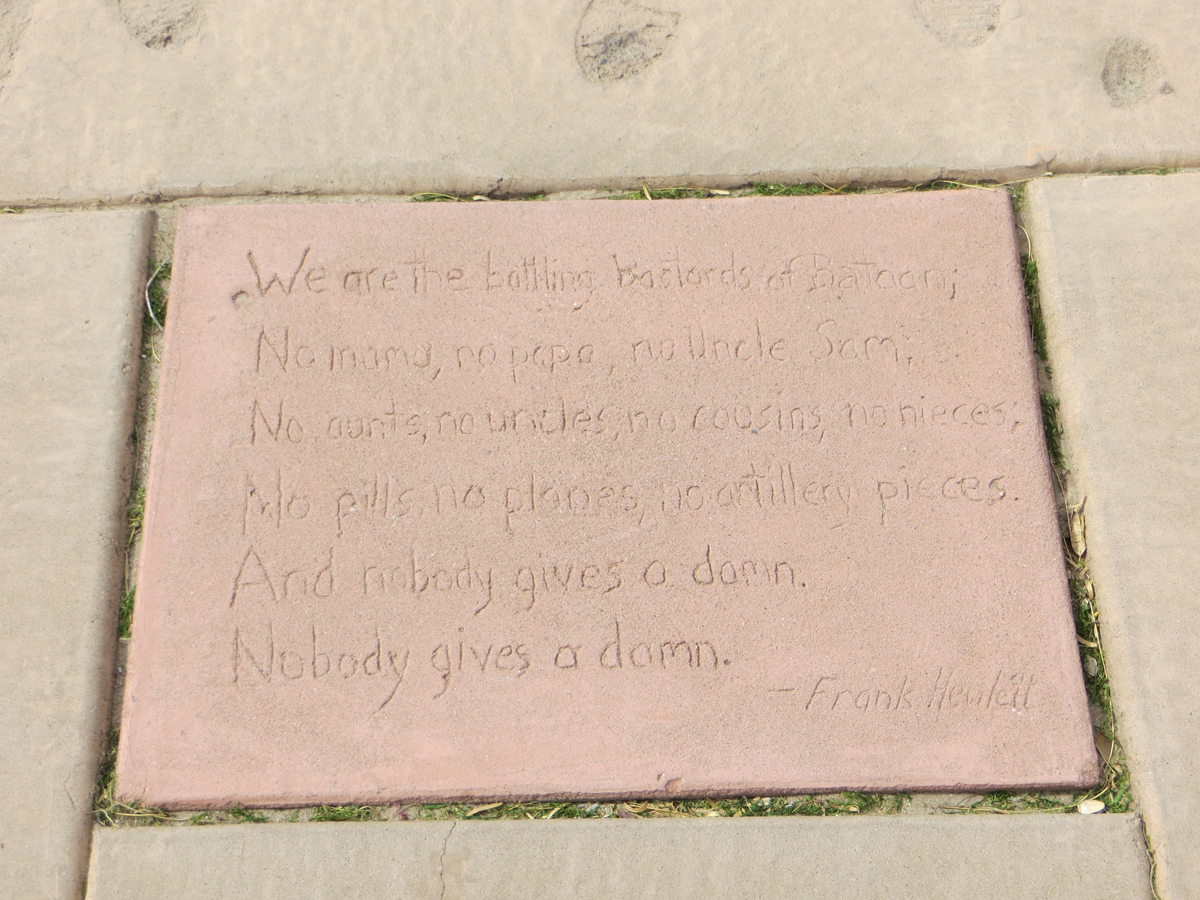 We are the battling bastards of Bataan;
No mama, no papa, no Uncle Sam;
No aunts, no uncles, no cousins, no nieces;
No pills, no planes, no artillery pieces.
And nobody gives a damn.
Nobody gives a damn.
— Frank Hewlett